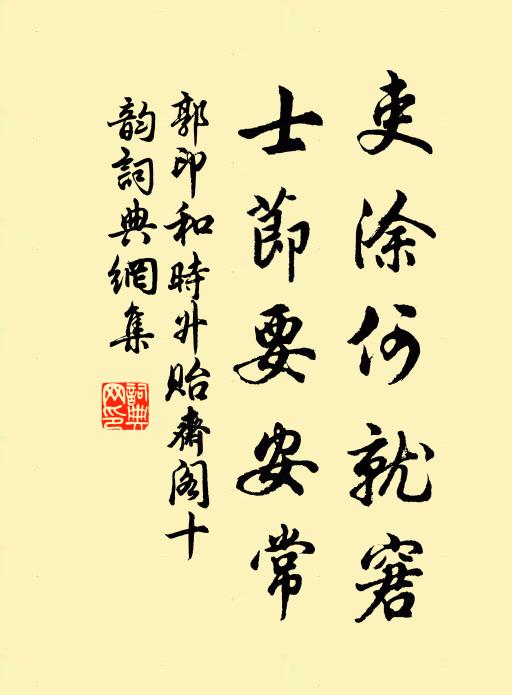 吏涂何就窘
士節要安常
郭印和時升貽齋閣十
韵詞典網集
詞典网印